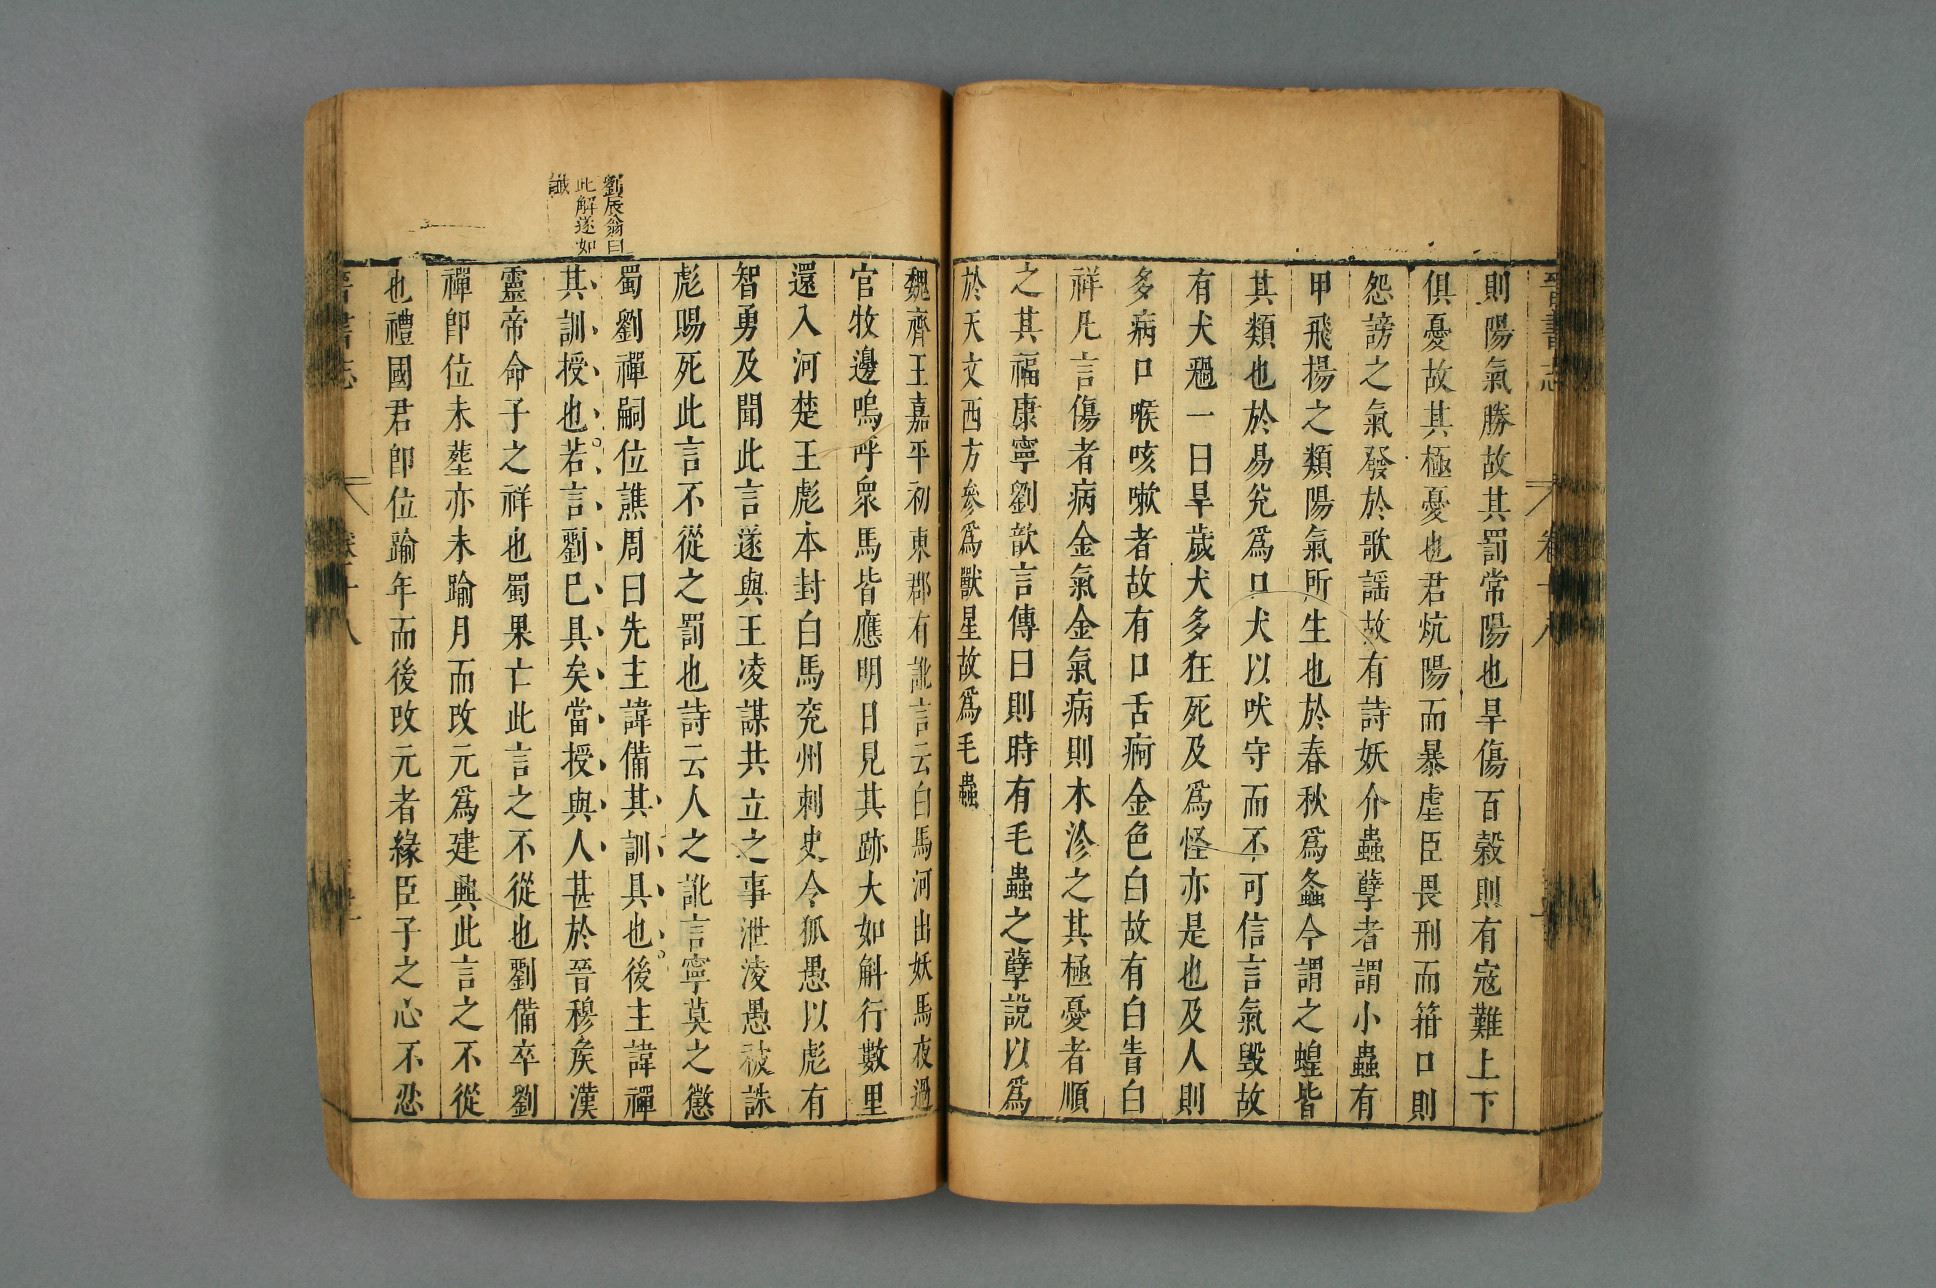 晉書志
卷十八
則陽氣勝故其罰常陽也旱傷百榖則有寇難上下
俱憂故其極憂也君炕陽而暴虐臣畏刑而箝口則
怨謗之氣發於歌謡故有詩妖介蟲孽者謂小蟲有
甲飛揚之類陽氣所生也於春秋爲螽今謂之蝗皆
其類也於易兊爲口犬以吠守而不可信言氣毀故
有犬𥚽一曰旱歲犬多狂死及爲怪亦是也及人則
多病口喉咳嗽者故有口舌痾金色白故有白眚白
祥凡言傷者病金氣金氣病則木沴之其極憂者順
之其福康寧劉歆言傳曰則時有毛蟲之孽說以爲
於天文西方參爲獸星故爲毛蟲
魏齊王嘉平初東郡有訛言云白馬河出妖馬夜過
官牧邊嗚呼衆馬皆應明日見其跡大如斛行數里
還入河楚王彪本封白馬兗州刺史令狐愚以彪有
智勇及聞此言遂與王凌謀共立之事泄淩愚被誅
彪賜死此言不從之罰也詩云人之訛言寧莫之懲
蜀劉禪嗣位譙周曰先主諱備其訓具也後主諱禪
其訓授也若言劉巳具矣當授與人甚於晉穆矦漢
靈帝命子之祥也蜀果亡此言之不從也劉備卒劉
禪卽位未葬亦未踰月而改元爲建興此言之不從
也禮國君卽位踰年而後改元者緣臣子之心不忍
劉辰翁曰
此解遂如
讖
晉書志
卷二十八